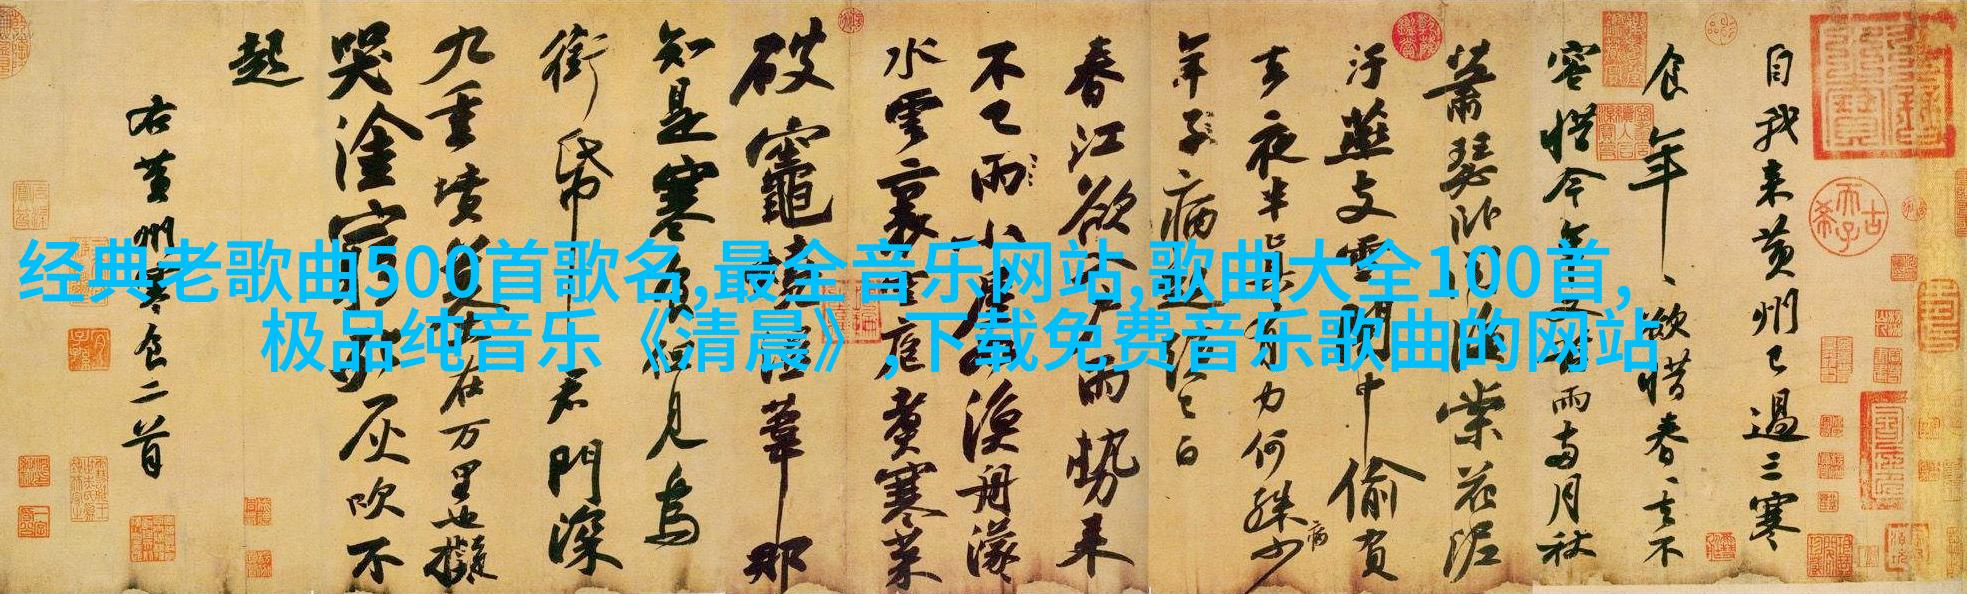 经典老歌曲500首歌名,最全音乐网站,歌曲大全100首,
极品纯音乐《清晨》,下载免费音乐歌曲的网站
自我来黄州已過三寒
食年〻欲惜春〻去不
容惜今年又苦雨兩月秋
蕭瑟卧聞海棠花泥
汙燕支雪闇中偷負
去夜半真有力何殊少
病
年子病起須已白
春江欲入户雨勢来
不已雨小屋如漁舟濛〻
水雲裏空庖煮寒菜
破竈燒濕葦那
知是寒食但見烏
銜帋君門深
九重墳墓在万里也擬
哭塗窮死灰吹不
起
右黄州寒食二首